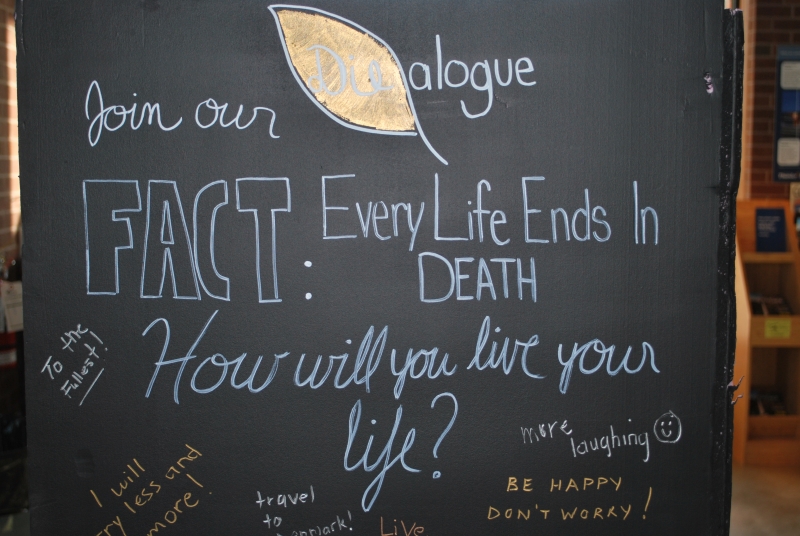 Join our Dialogue
FACT: Every Life Ends In
DEATH
How will you live your
life?
To the
Fullest!
more
laughing
BE HAPPY
DON'T WORRY!
I will
less and
more!
travel
to
Live